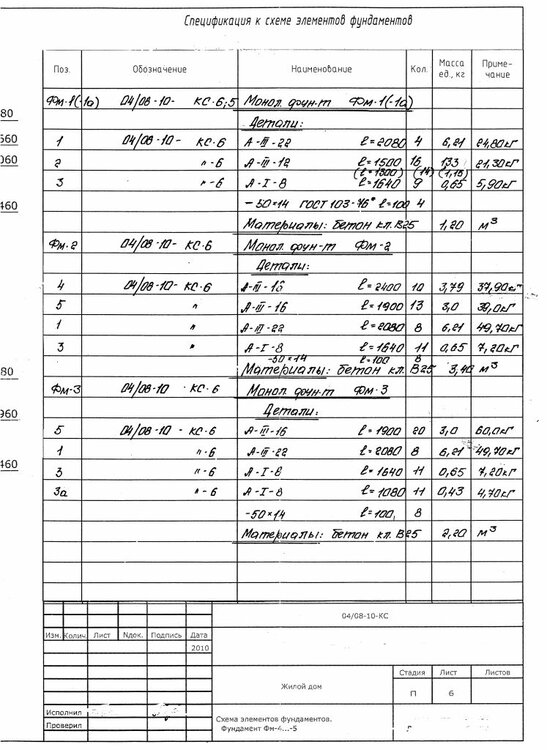 Спецификация к схеме элементов фундаментов
Поз. Обозначение Наименование Кол. Масса ед., кг Приме-чание
Фм-1(-1а) 04/08-10- КС-6;5 Монол. фун-т Фм-1(-1а)
Детали:
1 04/08-10- КС-6 А-III-22 ℓ=2080 4 6,21 24,80кг
2 "-6 А-III-12 ℓ=1500 16 1,33 21,30кг
(ℓ=1300) (14) (1,15)
3 "-6 А-I-8 ℓ=1640 9 0,65 5,90кг
-50×14 ГОСТ 103-76* ℓ=100 4
Материалы: бетон кл. В25 1,20 м³
Фм-2 04/08-10- КС-6 Монол. фун-т Фм-2
Детали:
4 04/08-10- КС-6 А-III-16 ℓ=2400 10 3,79 37,90кг
5 " А-III-16 ℓ=1900 13 3,0 39,0кг
1 " А-III-22 ℓ=2080 8 6,21 49,70кг
3 " А-I-8 ℓ=1640 11 0,65 7,20кг
-50×14 ℓ=100 8
Материалы: бетон кл. В25 3,40 м³
Фм-3 04/08-10 - КС-6 Монол. фун-т Фм-3
Детали:
5 04/08-10 - КС-6 А-III-16 ℓ=1900 20 3,0 60,0кг
1 "-6 А-III-22 ℓ=2080 8 6,21 49,70кг
3 "-6 А-I-8 ℓ=1640 11 0,65 7,20кг
3а "-6 А-I-8 ℓ=1080 11 0,43 4,70кг
-50×14 ℓ=100, 8
Материалы: бетон кл. В25 2,20 м³
80
560
060
460
80
960
460
04/08-10-КС
Изм. Колич. Лист Nдок. Подпись Дата
2010
Жилой дом
Стадия Лист Листов
П 6
Исполнил
Проверил
Схема элементов фундаментов.
Фундамент Фм-4...-5